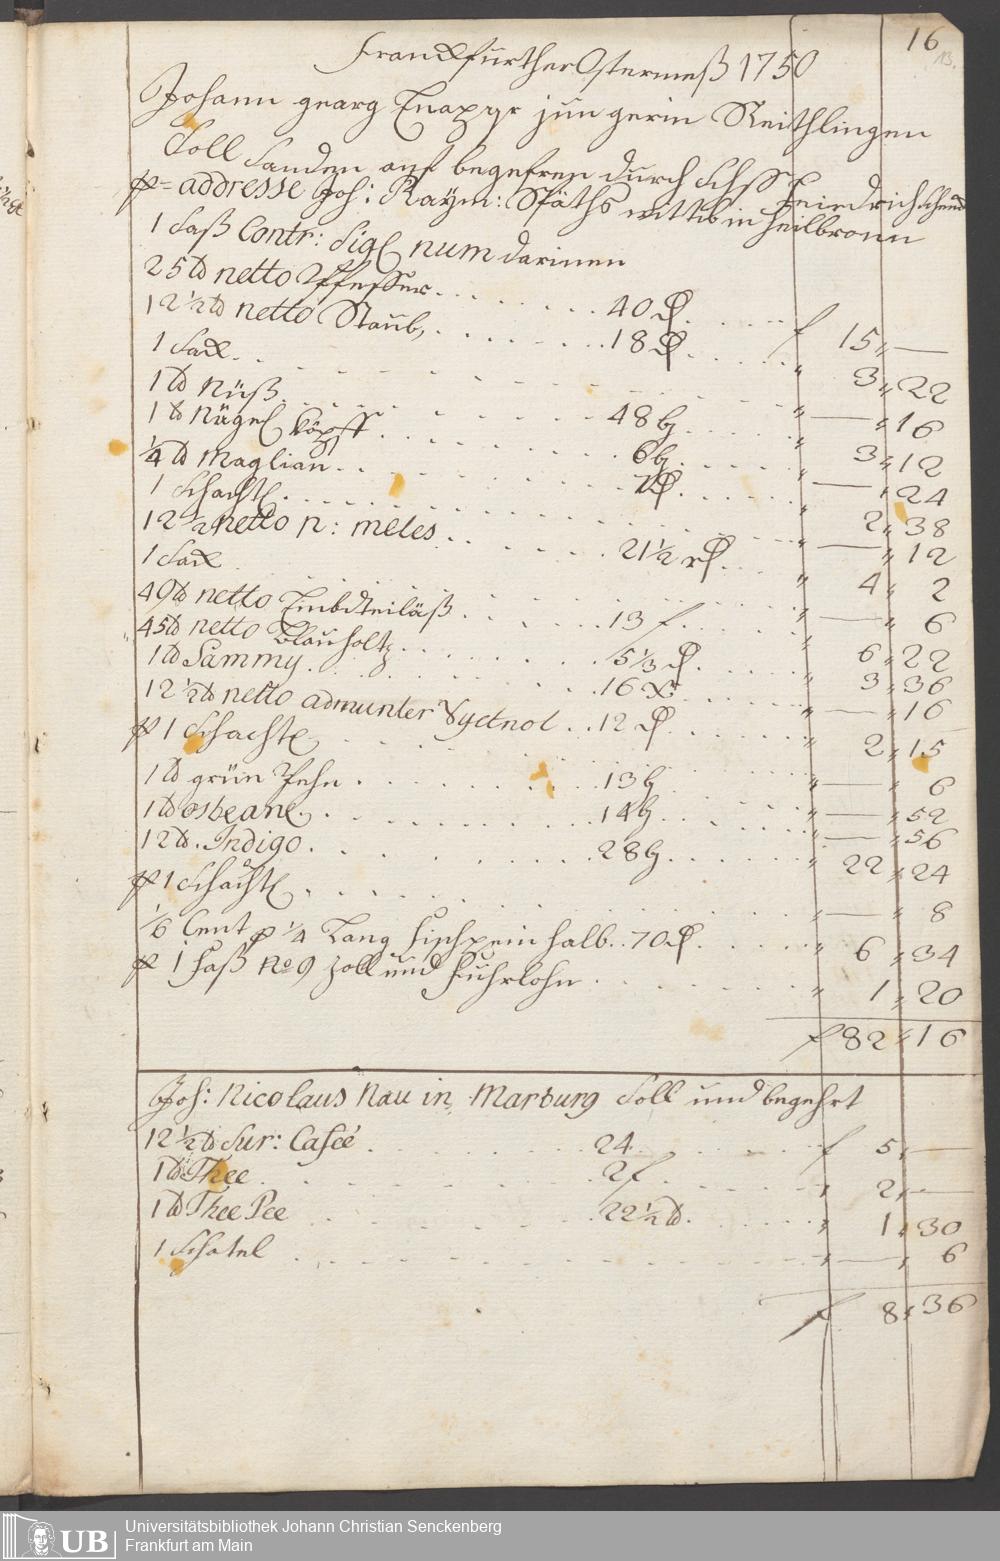 16
Franckfurther Ostermeß 1750
Johann georg Knapp junger in Reithlingen
Soll Sanden auf begehren durch Friedrich
p addresse Joh: Raÿm: Späths wittib in Heilbronn
1 Faß Contr: Sigl num darinen
25 ℔ netto Pfeffer 40 15 —
12 ½ ℔ netto Staub, 18 3 22
1 Sack — 16
1 ℔ Nüß 48 3 12
1 ℔ Nägel Köpff 6 — 24
¼ ℔ Maglian 2 38
1 Schachtl — 12
12 ½ netto p: meles 21½ 4 2
1 Sack — 6
49 ℔ netto 13 f 6 22
45 ℔ netto Blauholtz 5⅓ 3 36
1 ℔ Sammy 16 — 16
12 ½ ℔ netto admunter 12 2 15
p 1 Schachtl — 6
1 ℔ grün 13 — 52
1 ℔ 14 — 56
12 ℔ Indigo 28 22 24
p 1 Schachtl — 8
⅙ Cent p ¼ Lang Fischpein halb 70 6 34
p 1 Faß No 9 Zoll und Fuhrlohn 1 20
f 82 16
Joh: Nicolaus Nau in Marburg Soll und begehrt
12 ½ ℔ Sur: Caffeé 24 f 5 —
1 ℔ Thee 2 f 2 —
1 ℔ Thee Pee 22½ 1 30
1 Schatel — 6
f 8 36
UB Universitätsbibliothek Johann Christian Senckenberg
Frankfurt am Main